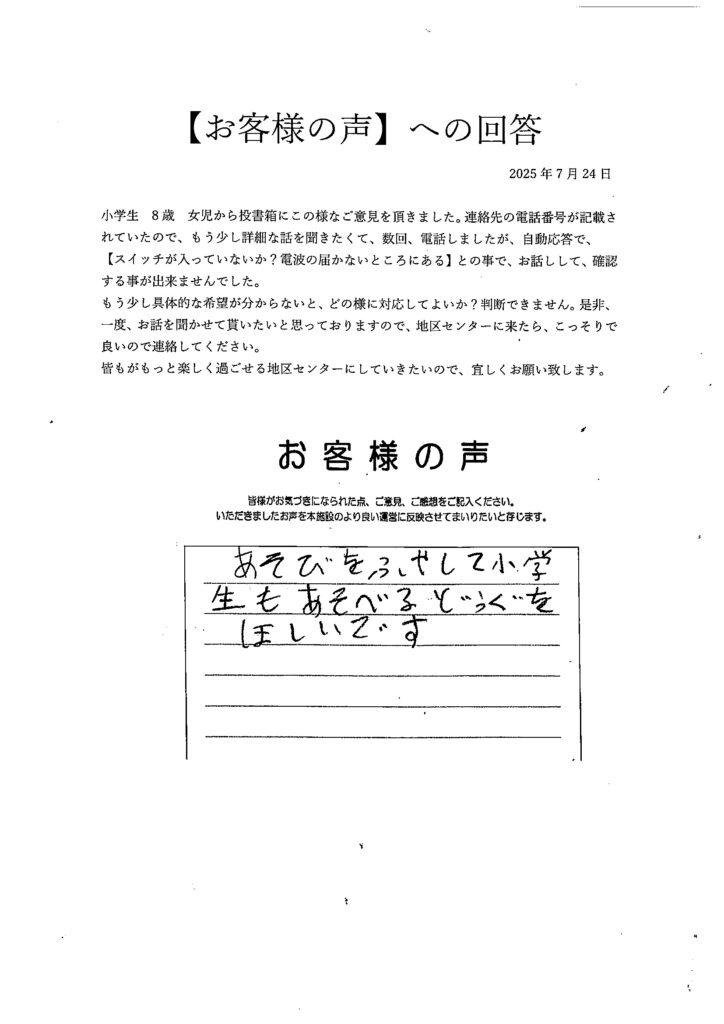 【お客様の声】への回答
2025年7月24日
小学生　8歳　女児から投書箱にこの様なご意見を頂きました。連絡先の電話番号が記載さ
れていたので、もう少し詳細な話を聞きたくて、数回、電話しましたが、自動応答で、
【スイッチが入っていないか？電波の届かないところにある】との事で、お話しして、確認
する事が出来ませんでした。
もう少し具体的な希望が分からないと、どの様に対応してよいか？判断できません。是非、
一度、お話を聞かせて貰いたいと思っておりますので、地区センターに来たら、こっそりで
良いので連絡してください。
皆もがもっと楽しく過ごせる地区センターにしていきたいので、宜しくお願い致します。
お客様の声
皆様がお気づきになられた点、ご意見、ご感想をご記入ください。
いただきましたお声を本施設のより良い運営に反映させてまいりたいと存じます。
あそびをふやして小学
生もあそべるどうぐを
ほしいです